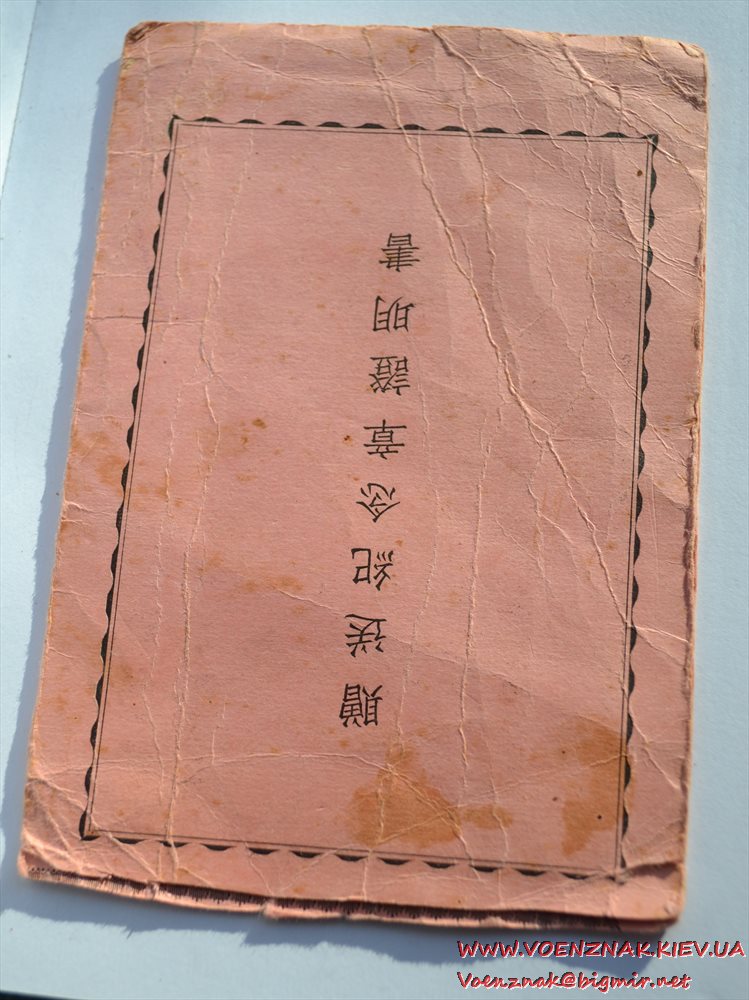 贈送紀念章證明書
WWW.VOENZNAK.KIEV.UA
Voenznak@bigmir.net